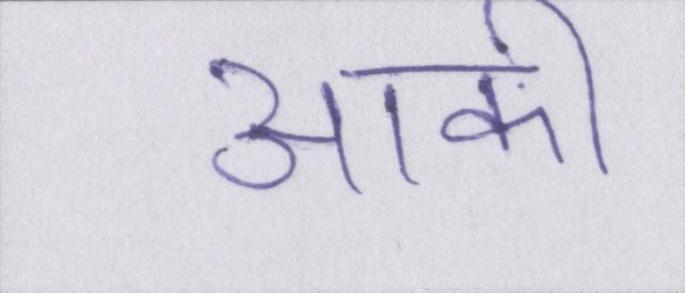 आकी